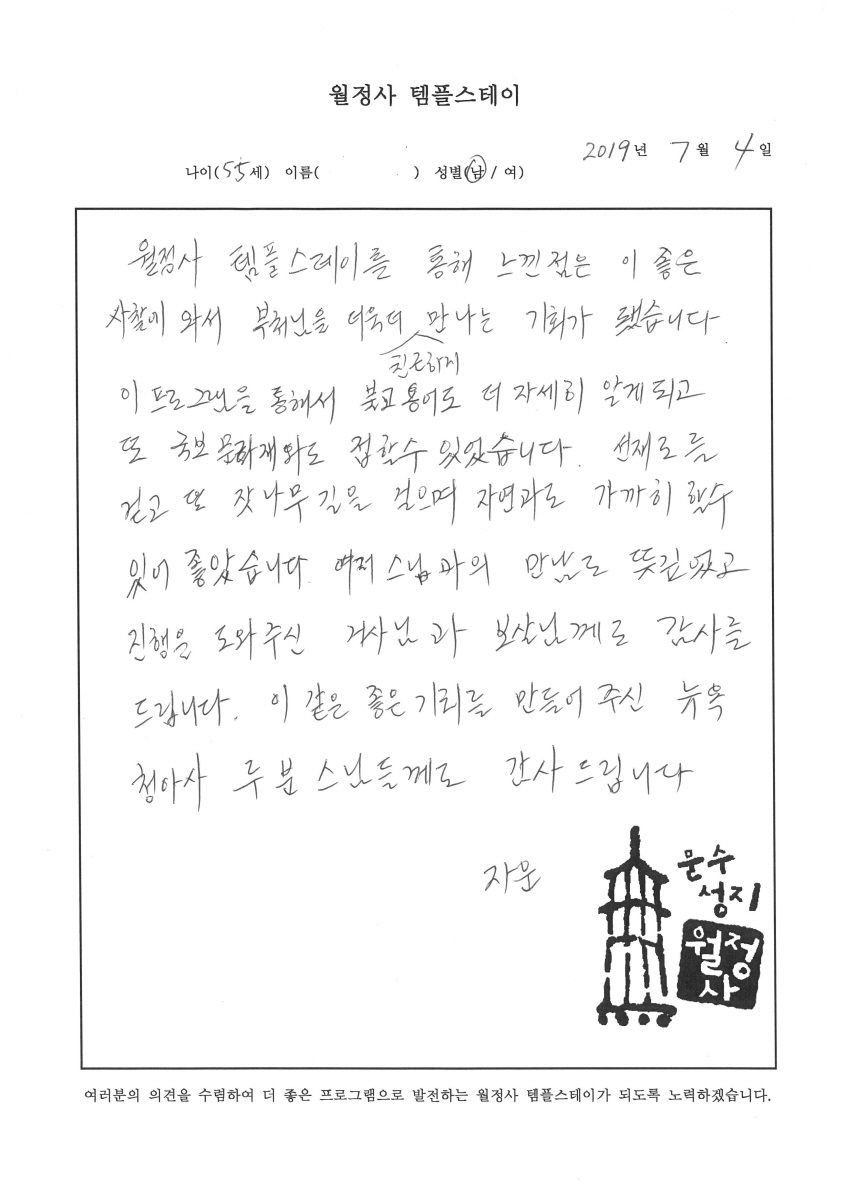 월정사 템플스테이
2019년 7월 4일
나이(55세) 이름( ) 성별(남 / 여)
월정사 템플스테이를 통해 느낀점은 이 좋은
사찰에 와서 부처님을 더욱더 만나는 기회가 됐습니다
친근하게
이 프로그램을 통해서 불교용어도 더 자세히 알게되고
또 국보 문화재와도 접할수 있었습니다. 선재로를
걷고 또 잣나무 길을 걸으며 자연과도 가까히 할수
있어 좋았습니다 스님과의 만남도 뜻깊었고
진행을 도와주신 거사님과 보살님께도 감사를
드립니다. 이 같은 좋은 만들어 주신 뉴욕
청아사 두분 스님들께도 감사드립니다
자운
문수
성지
월정
사
여러분의 의견을 수렴하여 더 좋은 프로그램으로 발전하는 월정사 템플스테이가 되도록 노력하겠습니다.